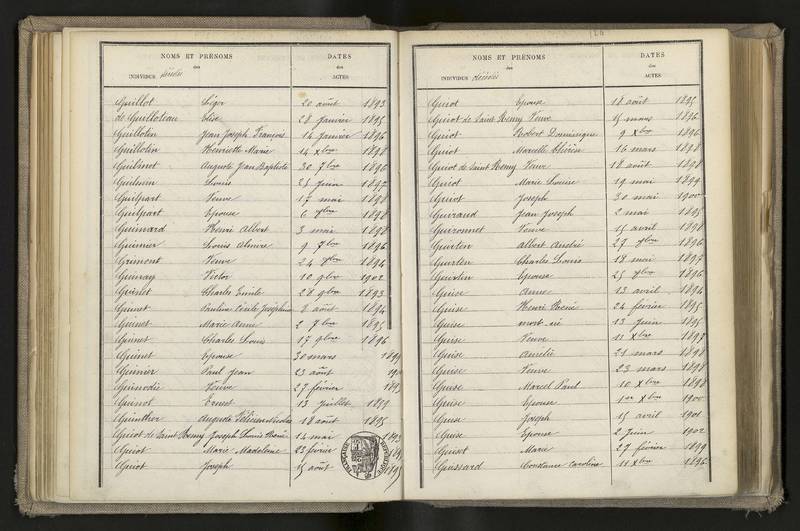 NOMS ET PRÉNOMS DATES
des des
INDIVIDUS décédés ACTES
Guillot Léger 20 août 1893
de Guilloteau Elise 28 Janvier 1895
Guillotin Jean Joseph François 14 Janvier 1896
Guillotin Henriette Marie 14 Xbre 1898
Guilmet Auguste Jean Baptiste 30 7bre 1896
Guilmin Louis 25 Juin 1897
Guilpart Veuve 17 mai 1898
Guilpart Epouse 6 1898
Guimard Henri Albert 3 mai 1898
Guimer Louis 9 7bre 1896
Grimont Veuve 24 1894
Guinay Victor 10 9bre 1902
Guinet Charles Emile 28 9bre 1893
Guinet Cécile Joséphine 8 août 1894
Guinet Marie Anne 2 7bre 1895
Guinet Charles Louis 17 9bre 1896
Guinet Epouse 30 mars 189
Guinier Paul Jean 23 août 19
Veuve 27 février 189
Guinot Ernest 13 Juillet 1899
Günther Auguste Nicolas 18 août 1895
Guiot de Saint Remy Joseph Louis 14 mai 1893
Guiot Marie Madeleine 23 février 189
Guiot Joseph 15 août 1895
NOMS ET PRÉNOMS DATES
des des
INDIVIDUS décédés ACTES
Guiot Epouse 18 août 1895
Guiot de Saint Remy Veuve 15 mars 1896
Guiot Robert Dominique 9 Xbre 1896
Guiot Marcelle 16 mars 1898
Guiot de Saint Remy Veuve 18 août 1898
Guiot Marie Louise 19 mai 1899
Guiot Joseph 30 mai 1900
Guiraud Jean Joseph 2 mai 1895
Guironnet Veuve 15 avril 1898
Guirlen Albert André 27 1896
Guirlen Charles Louis 18 mai 1897
Guirlin Epouse 25 1896
Guise Anne 13 avril 1894
Guise Henri 24 février 1895
Guise mort-né 13 Juin 1895
Guise Veuve 11 Xbre 1897
Guise Aurélie 21 mars 1898
Guise Veuve 23 mars 1898
Guise Marcel Paul 10 Xbre 1898
Guise Epouse 1er Xbre 1900
Guise Joseph 15 avril 1901
Guise Epouse 2 Juin 1902
Guiset Marie 27 février 1899
Guissard Constance Caroline 11 Xbre 1896